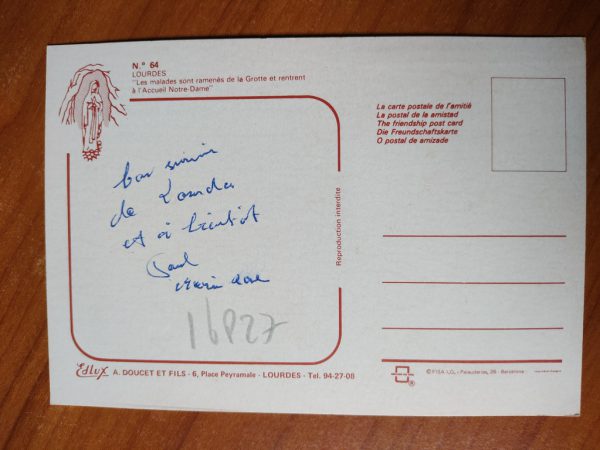 N.° 64
LOURDES
"Les malades sont ramenés de la Grotte et rentrent
à l'Accueil Notre-Dame"
La carte postale de l'amitié
La postal de la amistad
The friendship post card
Die Freundschaftskarte
O postal de amizade
bon souvenir
de Lourdes
et à bientôt
Paul
Marie Rose
16P27
Reproduction interdite
Edlux A. DOUCET ET FILS - 6, Place Peyramale - LOURDES - Tel. 94-27-08
© FISA I.G. - Palaudarias, 26 - Barcelona